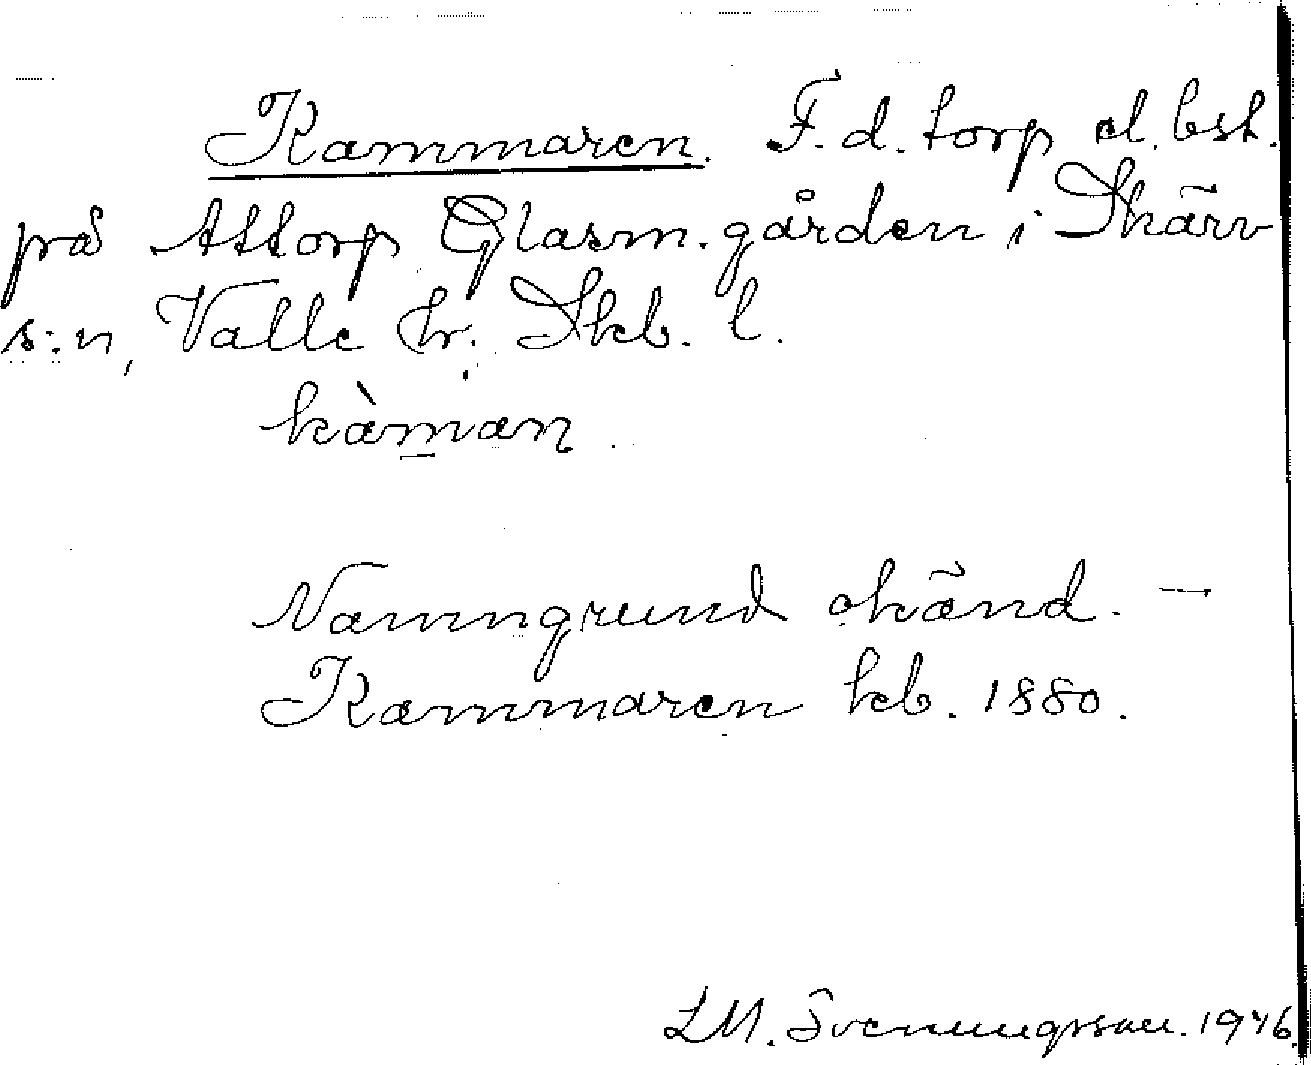 Kammaren. F. d. torp el. bst.
på Attorp Glasm. gården i Skärv
s:n, Valle hr. Skb. l.
kàman.
Namngrund okänd. —
Kammaren kb. 1880.
LM. Svenungsson. 1946.